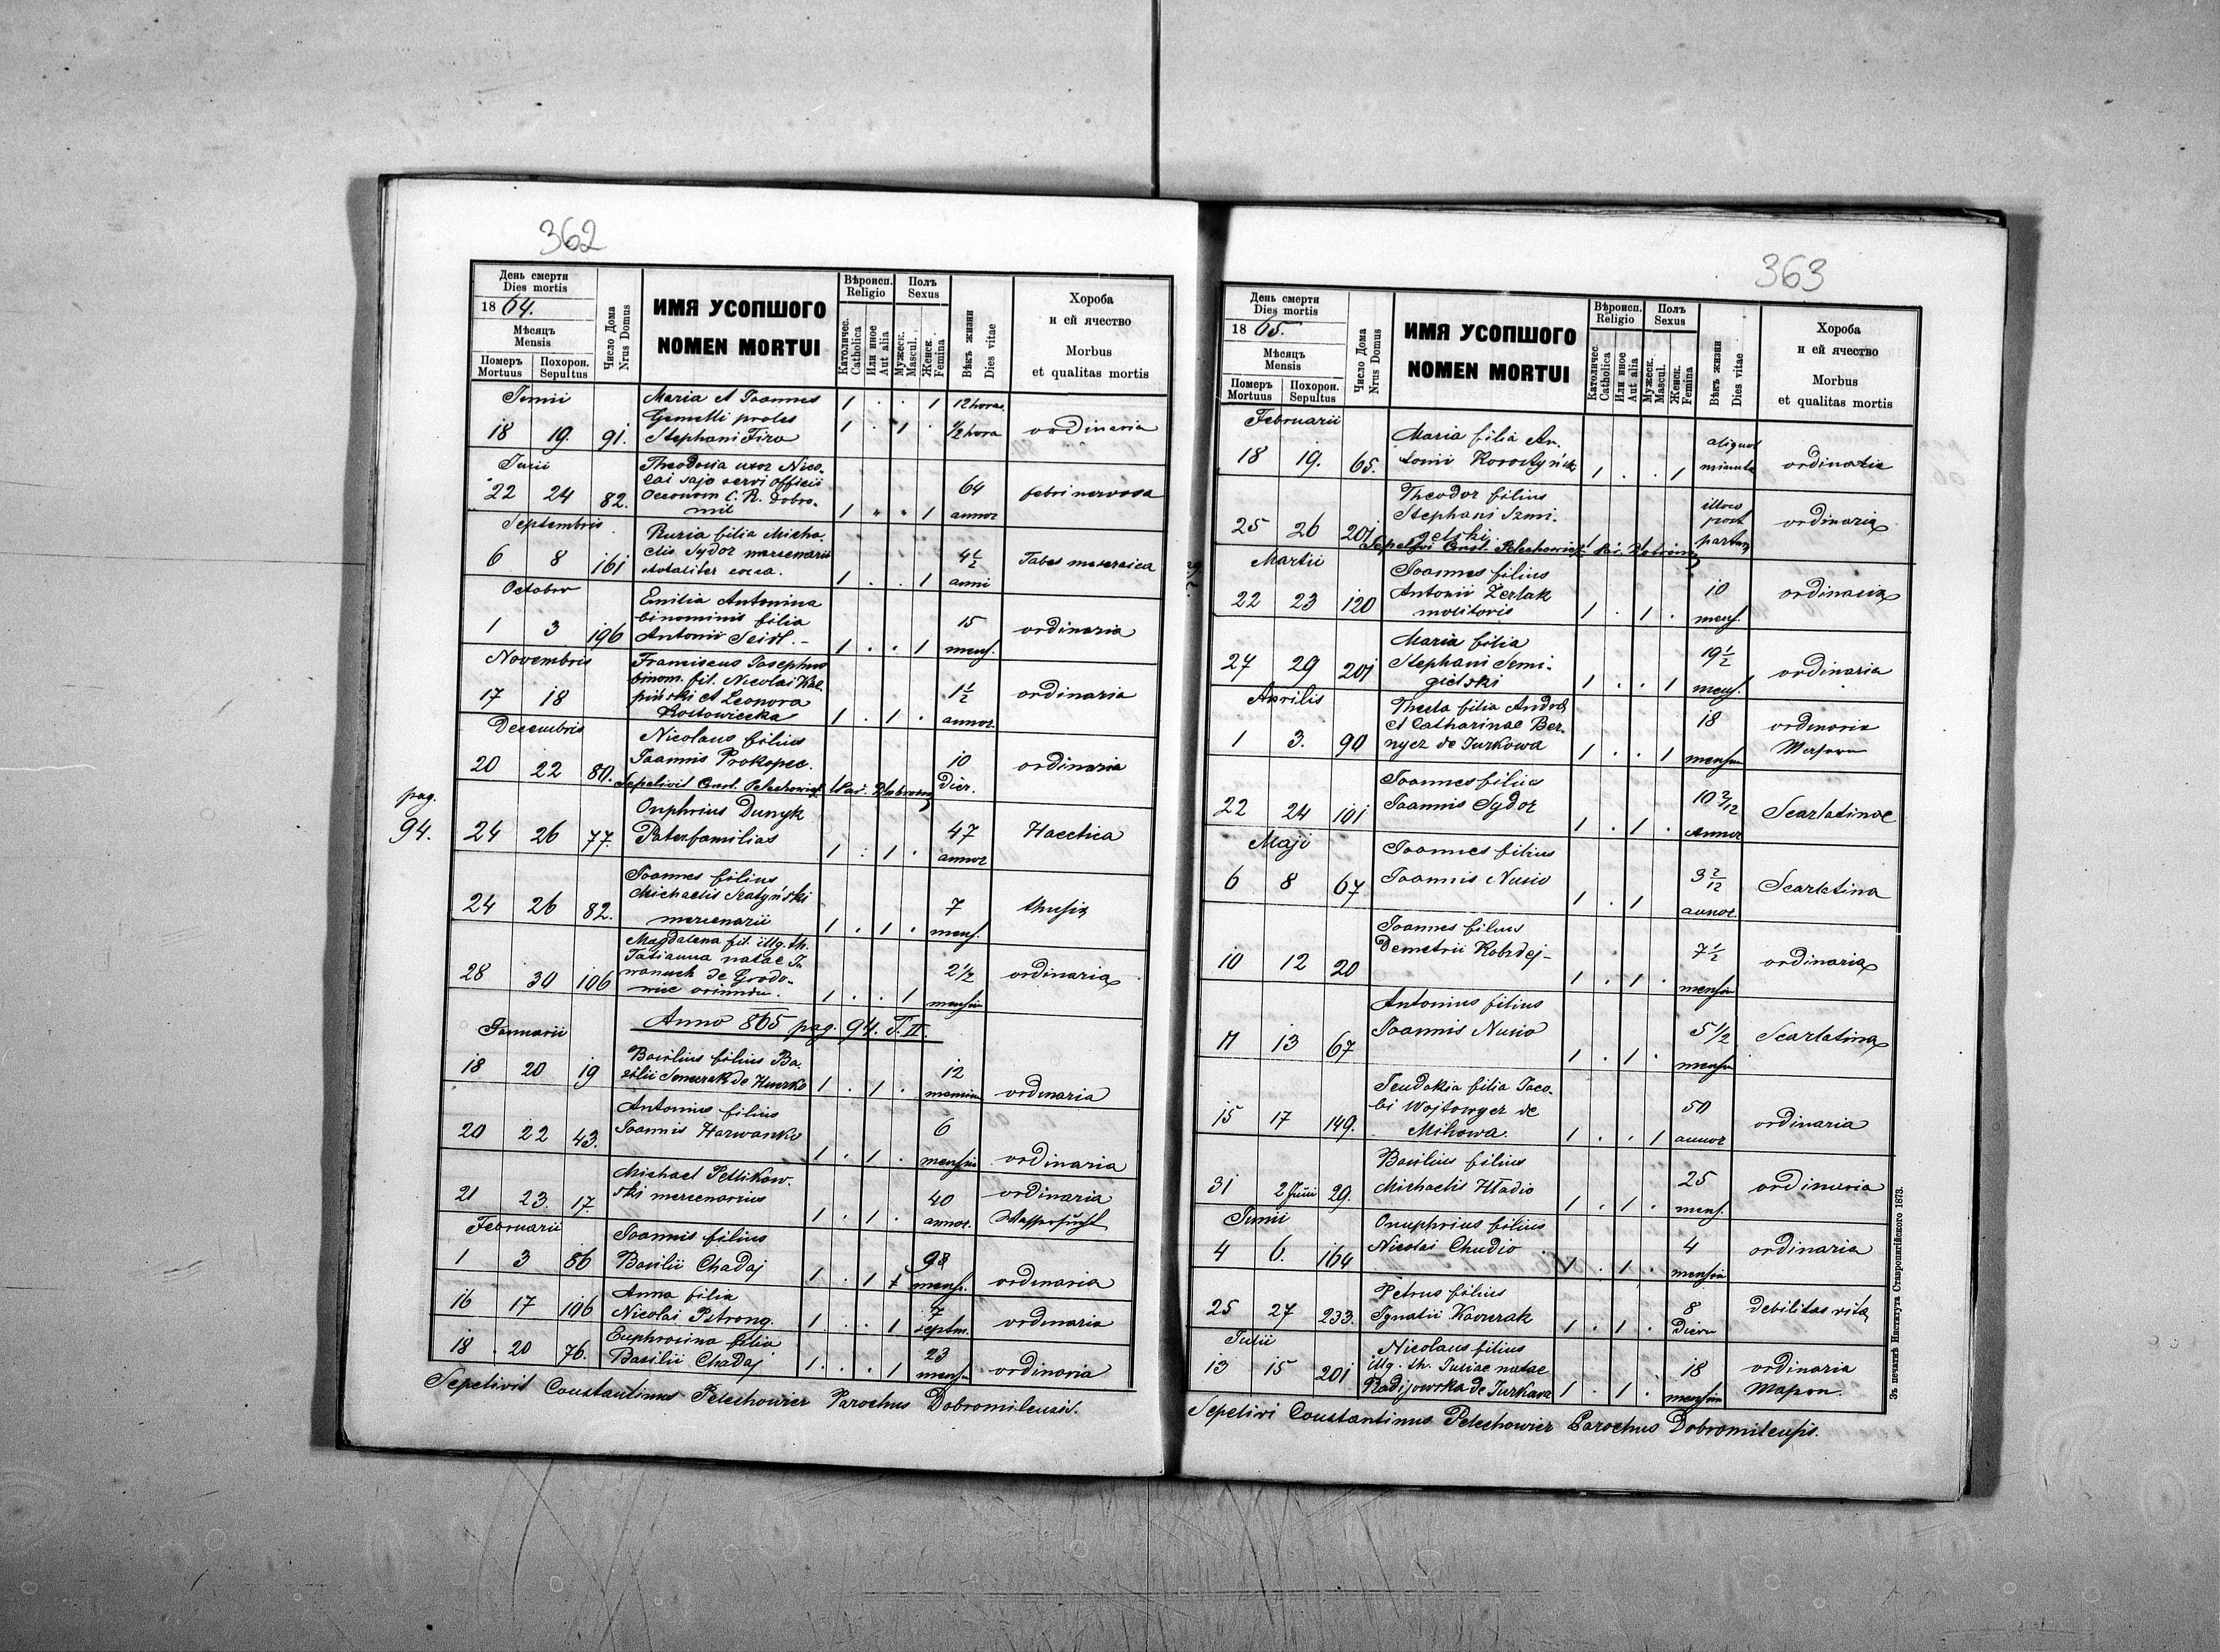 362
День смерти
Dies mortis
1864.
Мѣсяцъ
Mensis
Померъ
Mortuus
Похорон.
Sepultus
Число Дома
Nrus Domus
ИМЯ УСОПШОГО
NOMEN MORTUI
Вѣроисп.
Religio
Католичес.
Catholica
Или иное
Aut alia
Полъ
Sexus
Мужеск.
Mascul.
Женск.
Femina
Вѣкъ жизни
Dies vitae
Хороба
и ей ячество
Morbus
et qualitas mortis
Junii
Maria et Joannes 1 . . 1 12 hora.
Gemelli proles 1 . 1 . 1/2 hora
18 19. 91. Stephani Fira ordinaria
Julii
Theodosia uxor Nico-
lai Sajo servi officii
22 24 82. Oeconom C. R. Dobro-
mil 1 . . 1 64 annor febri nervosa
Septembris
Ruzia filia Micha-
6 8 161 elis Sydor mercenarii
totaliter coeca. 1 . . 1 4 1/2 anni Tabes meseraica
October
Emilia Antonina
binominis filia
1 3 196 Antonii Seidl. - 1 . . 1 15 mens. ordinaria
Novembris
Franciscus Josephus
binom. fil. Nicolai
17 18 et Leonora
1 . 1 . 1 1/2 annor. ordinaria
Decembris
Nicolaus filius
20 22 80. Joannis Prokopec. 10 Dier. ordinaria
Sepelivit Const. Pelechowicz Par. Dobrom
pag.
94.
Onphrius Dunyk
24 26 77. Paterfamilias 1 . 1 . 47 annor Haectica
Joannes filius
24 26 82. Michaelis
mercenarii 1 . 1 . 7 mens.
Magdalena fil. illg. th.
Tatianna natae
28 30 106 de Grodo-
wic oriundu. 1 . . 1 2 1/2 mensiu ordinaria
Anno 865 pag. 94. T. II.
Januarii
Basilius filius Ba-
18 20 19 silii de 1 . 1 . 12 ordinaria
Antonius filius
20 22 43. Joannis Harwanko 1 . 1 . 6 mensiu ordinaria
Michael Pettikow-
21 23. 17. ski mercenarius 1 . 1 . 40 annor. ordinaria
Wassersucht
Februarii
Joannis filius
1 3 86 Basilii Chadaj 1 . 1 98 mens. ordinaria
Anna filia
16 17 106 Nicolai Pstrong. 1 . . 1 7 septm. ordinaria
Euphrosina filia
18 . 20 76. Basilii Chadaj 1 . . 1 23 mens ordinaria
Sepelivit Constantinus Pelechowicz Parochus Dobromilensis.
363
День смерти
Dies mortis
1865.
Мѣсяцъ
Mensis
Померъ
Mortuus
Похорон.
Sepultus
Число Дома
Nrus Domus
ИМЯ УСОПШОГО
NOMEN MORTUI
Вѣроисп.
Religio
Католичес.
Catholica
Или иное
Aut alia
Полъ
Sexus
Мужеск.
Mascul.
Женск.
Femina
Вѣкъ жизни
Dies vitae
Хороба
и ей ячество
Morbus
et qualitas mortis
Februarii
Maria filia An-
18 19. 65. tonii 1 . . 1 aliquot minuta ordinaria
Theodor filius
Stephani Szmi-
25 26 201 gelski illico post partum ordinaria
Sepelivi Const. Pelechowicz Par. Dobrom
Martii
Joannes filius
22 23 120 Antonii Zerlak
molitoris 1 . 1 . 10 mens. ordinaria
Maria filia
27 29 201 Stephani Smi-
gielski 1 . . 1 19 1/2 mens. ordinaria
Aprilis
Thecla filia Andreae
et Catharinae Ber-
1 3. 90 nycz de Turkowa 1 . . 1 18 mensiu ordinaria
Joannes filius
22 24 101 Joannis Sydor 1 . 1 . 10 2/12 annor Scarlatinae
Maji
Joannes filius
6 8 67 Joannis Nusio 1 . 1 3 2/12 annor. Scarlatina
Joannes filius
10 12 20 Demetrii Kobrdej- 1 . 1 . 7 1/2 mensiu ordinaria
Antonius filius
11 13 67 Joannis Nusio 1 . 1 . 5 1/2 mensiu Scarlatina
Teudokia filia Jaco-
15 17 149. bi Wojtowycz de
Mihowa. 1 . . 1 50 annor ordinaria
Basilius filius
31 2 Junii 29. Michaelis Hladio 1 . 1 . 25 mens. ordinaria
Junii
Onuphrius filius
4 6. 164 Nicolai Chudio 1 . 1 . 4 mensiu ordinaria
Petrus filius
25 27 233. Ignatii 1 . 1 . 8 Dieru debilitas vitae
Julii
Nicolaus filius
13 15 201 illg. th. Juliae natae
Radijowska de Turkawa 1 . 1 . 18 mensiu ordinaria
Sepelivi Constantinus Pelechowicz Parochus Dobromilensis.
Зъ печатнѣ Института Ставропигійского 1873.